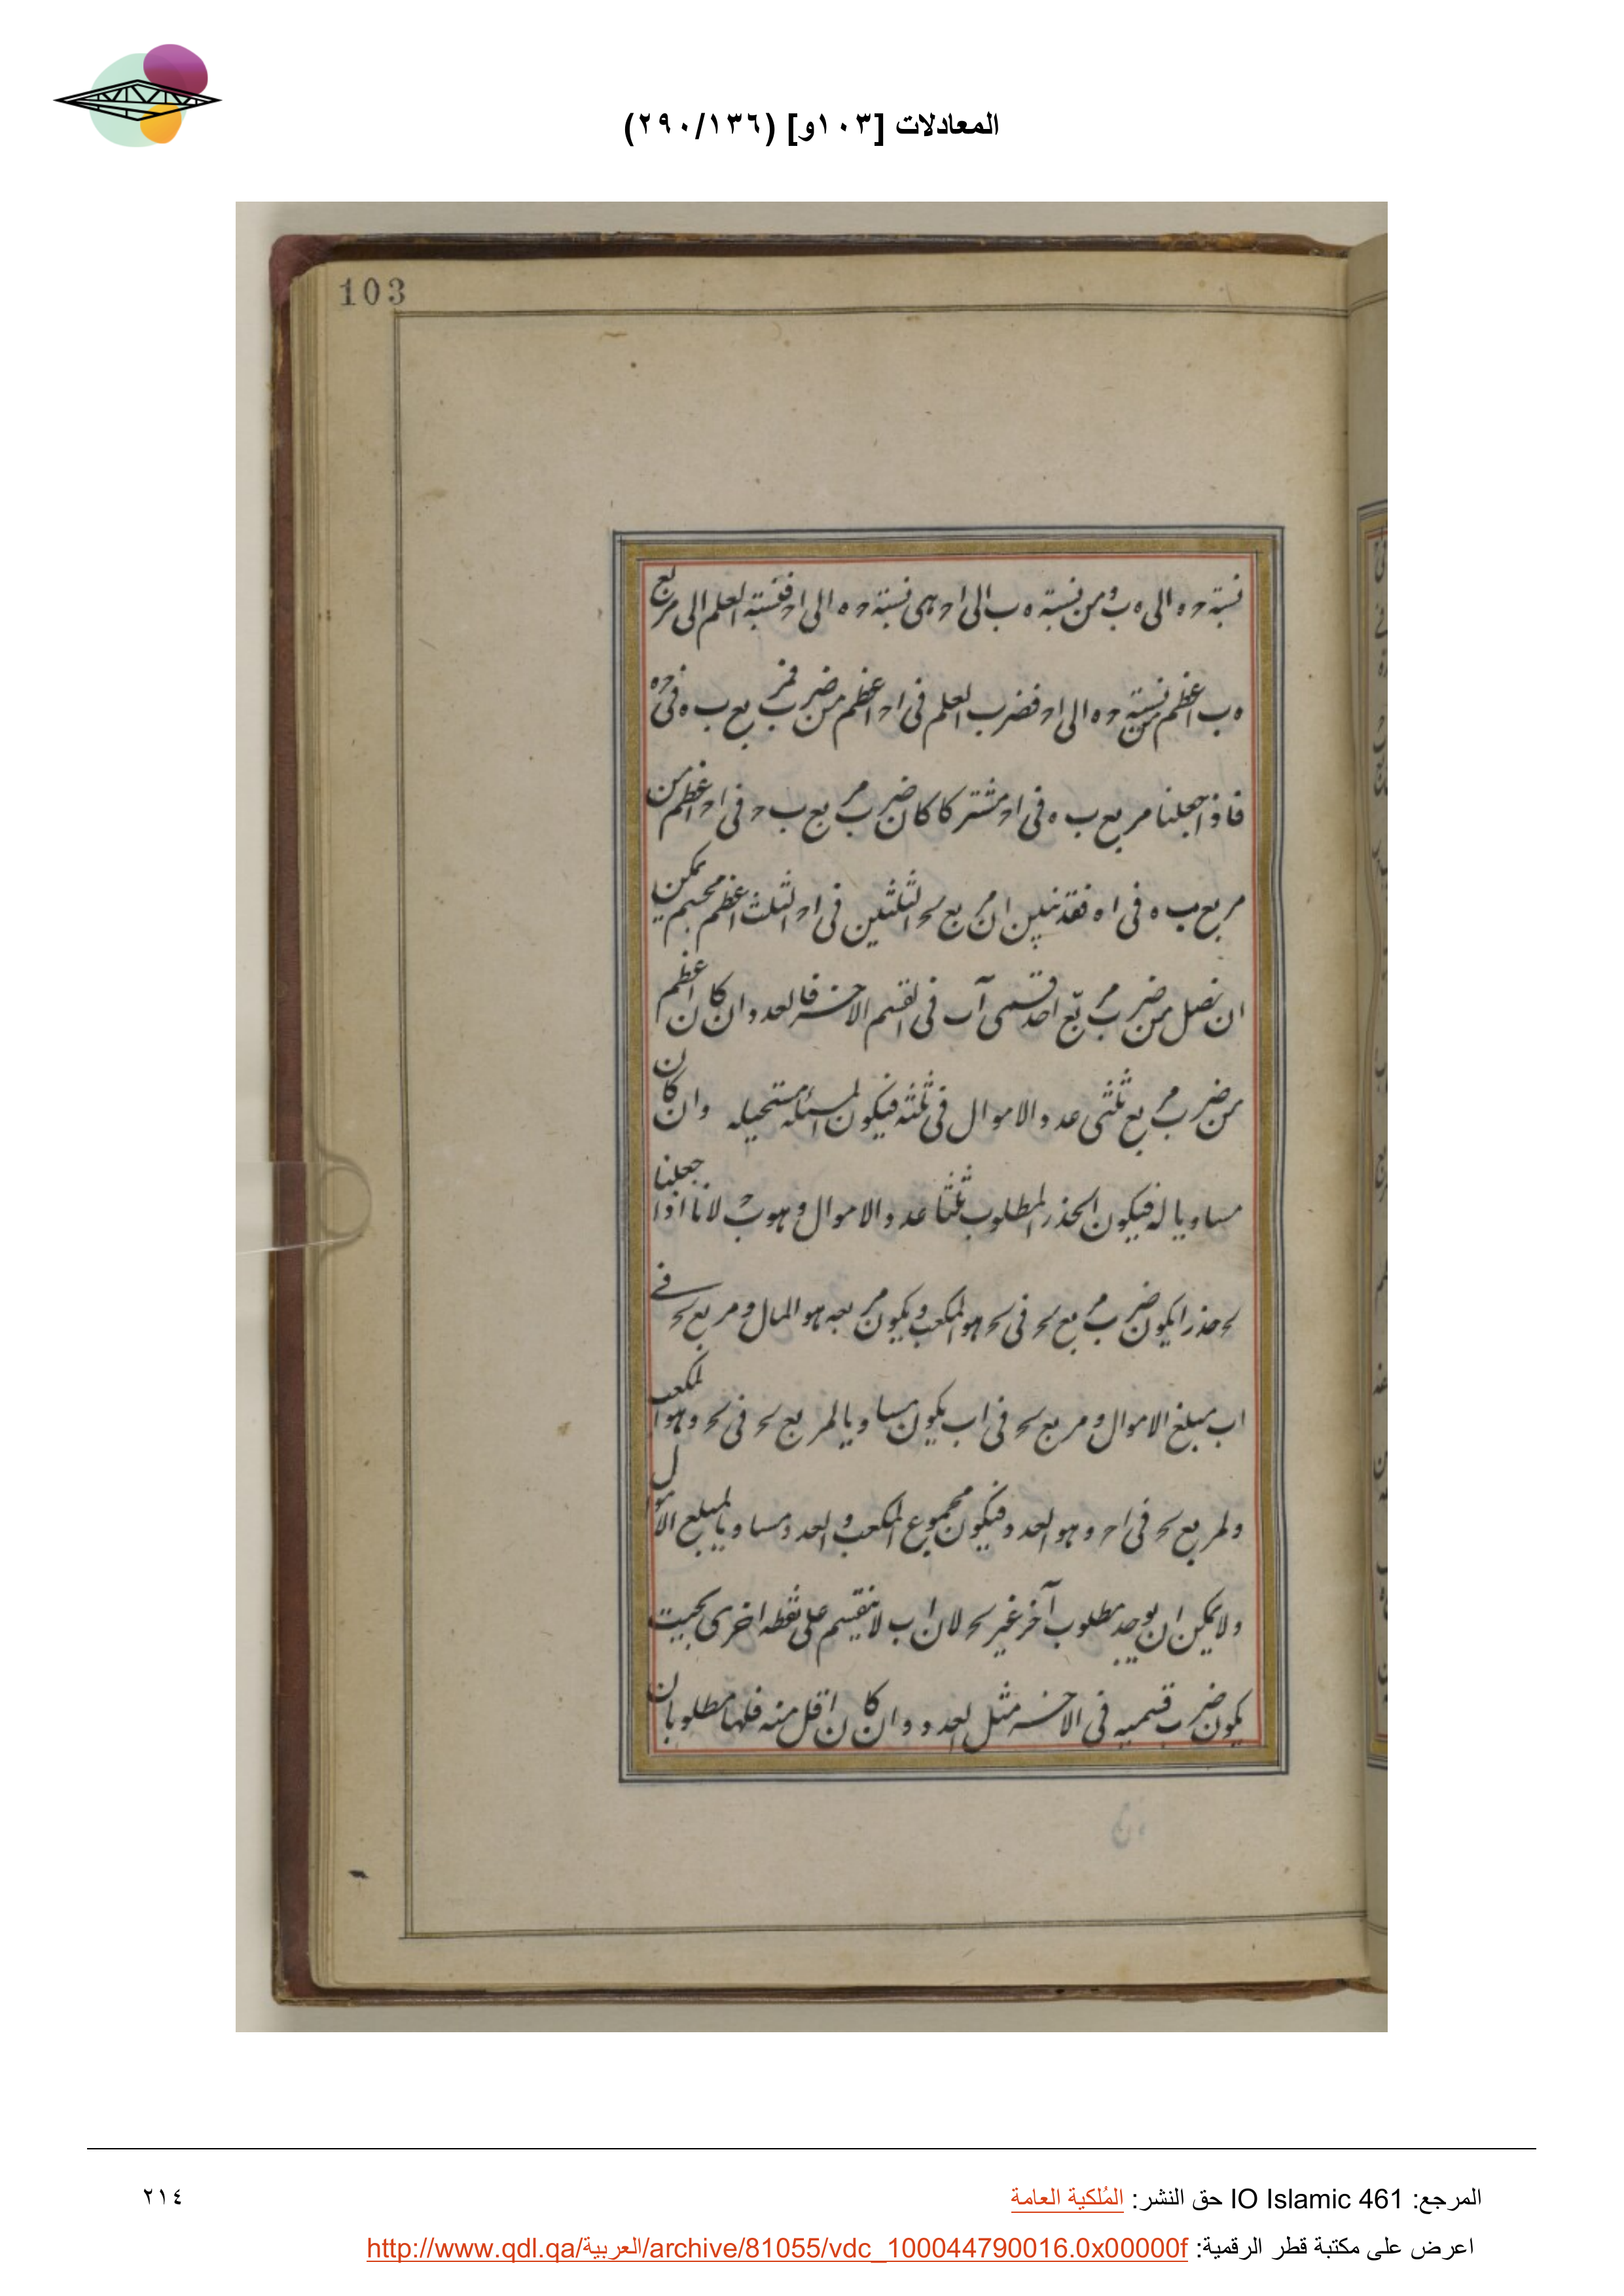 المعادلات [١٠٣و] (٢٩٠/١٣٦)
103
نسبة حه الى ه ب ومن نسبة ه ب الى اح هى نسبة حه الى اح فنسبة العلم الى مربع
ه ب اعظم من نسبة حه الى اح فضرب العلم فى اح اعظم من ضرب مربع ب ه فى حه
فاذا جعلنا مربع ب ه فى اح مشتركا كان ضرب مربع ب ح فى اح اعظم من
مربع ب ه فى اه فقد تبين ان مربع بح الثلثين فى اح الثلث اعظم مجسم يمكن
ان نصل من ضرب مربع احد قسمى آب فى القسم الاخر فالعدد ان كان اعظم
من ضرب مربع ثلثى عدد الاموال فى ثلثه فيكون المسئله مستحيله وان كان
مساويا له فيكون الجذر المطلوب ثلثا عدد الاموال وهو بح لانا اذا جعلنا
بح جذرا يكون ضرب مربع بح فى بح هو المكعب ويكون مربعه هو المال ومربع بح فى
اب مبلغ الاموال ومربع بح فى اب يكون مساويا لمربع بح فى بح وهو المكعب
ولمربع بح فى اح وهو العدد فيكون مجموع المكعب والعدد مساويا لمبلغ الاموال
ولا يمكن ان يوجد مطلوب آخر غير بح لان اب لا ينقسم على نقطه اخرى بحيث
يكون ضرب قسميه فى الاخر مثل العدد وان كان اقل منه فلها مطلوبان
المرجع: IO Islamic 461 حق النشر: المُلكية العامة
٢١٤
اعرض على مكتبة قطر الرقمية: http://www.qdl.qa/العربية/archive/81055/vdc_100044790016.0x00000f